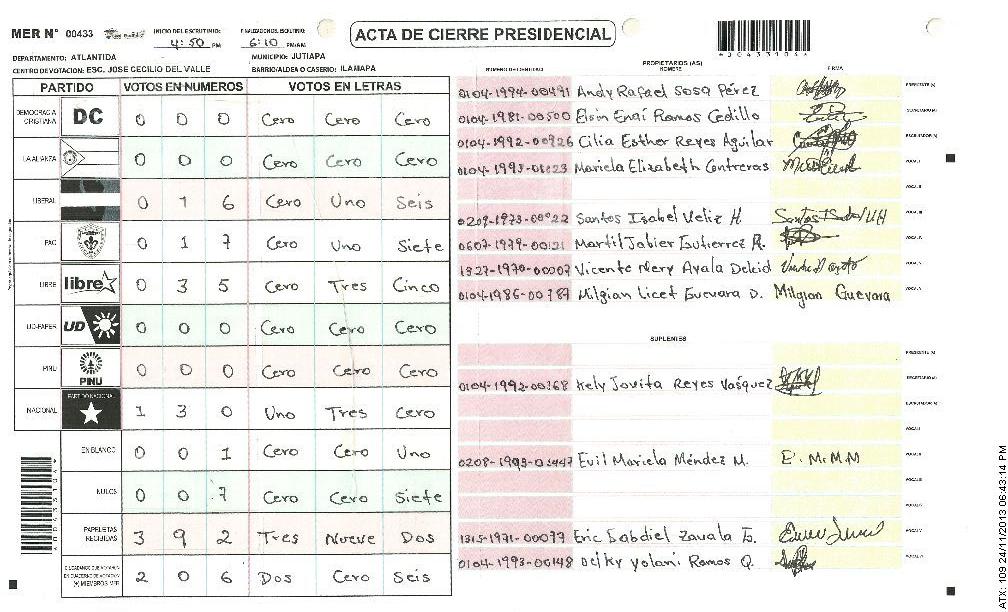 MER N° 00433 INICIO DEL ESCRUTINIO: 4:50 PM FINALIZACION DEL ESCRUTINIO: 6:10 PM/AM
ACTA DE CIERRE PRESIDENCIAL
DEPARTAMENTO: ATLANTIDA MUNICIPIO: JUTIAPA
CENTRO DE VOTACION: ESC. JOSÉ CECILIO DEL VALLE BARRIO/ALDEA O CASERIO: ILAMAPA
PARTIDO VOTOS EN NUMEROS VOTOS EN LETRAS
DEMOCRACIA CRISTIANA DC 0 0 0 Cero Cero Cero
LA ALIANZA 0 0 0 Cero Cero Cero
LIBERAL 0 1 6 Cero Uno Seis
PAC 0 1 7 Cero Uno Siete
LIBRE libre 0 3 5 Cero Tres Cinco
UD-FAPER UD 0 0 0 Cero Cero Cero
PINU PINU 0 0 0 Cero Cero Cero
NACIONAL PARTIDO NACIONAL 1 3 0 Uno Tres Cero
EN BLANCO 0 0 1 Cero Cero Uno
NULOS 0 0 7 Cero Cero Siete
PAPELETAS RECIBIDAS 3 9 2 Tres Nueve Dos
CIUDADANOS QUE VOTARON EN CUADERNO DE VOTACION (+) MIEMBROS MER 2 0 6 Dos Cero Seis
PROPIETARIOS (AS)
NUMERO DE IDENTIDAD NOMBRE FIRMA
0104-1994-00491 Andy Rafael Sosa Pérez PRESIDENTE (A)
0104-1981-00500 Elsin Enaí Ramos Cedillo SECRETARIO (A)
0104-1992-00926 Cilia Esther Reyes Aguilar ESCRUTADOR (A)
0104-1993-01023 Mariela Elizabeth Contreras VOCAL I
VOCAL II
0209-1973-00022 Santos Isabel Veliz H. VOCAL III
0607-1979-00121 Martil Jabier Gutierrez R. VOCAL IV
1827-1970-00007 Vicente Nery Ayala Delcid VOCAL V
0104-1986-00787 Milgian Licet Guevara D. Milgian Guevara VOCAL VI
SUPLENTES
PRESIDENTE (A)
0104-1992-00368 Kely Jovita Reyes Vasquez SECRETARIO (A)
ESCRUTADOR (A)
VOCAL I
0208-1993-03447 Evil Mariela Méndez M. E. M. M M VOCAL II
VOCAL III
1315-1971-00077 Eric Sabdiel Zavala VOCAL V
0104-1993-00148 Delky Yolani Ramos Q. VOCAL VI
ATX: 109 24/11/2013 06:43:14 PM